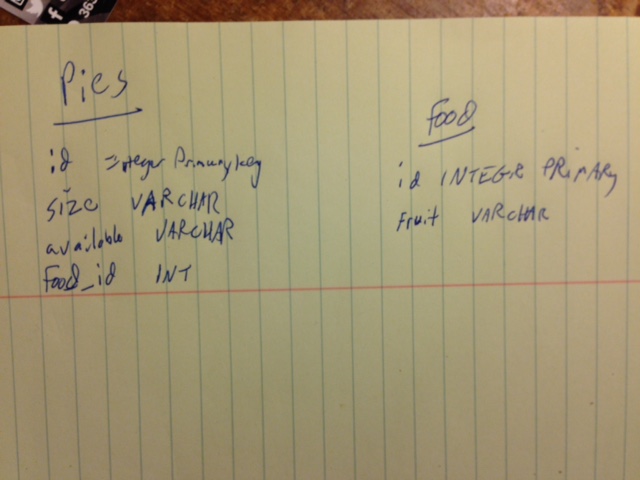 Pies
id Integer Primary key
size VARCHAR
available VARCHAR
Food_id INT
Food
id INTEGR PRIMARY
Fruit VARCHAR
f
365